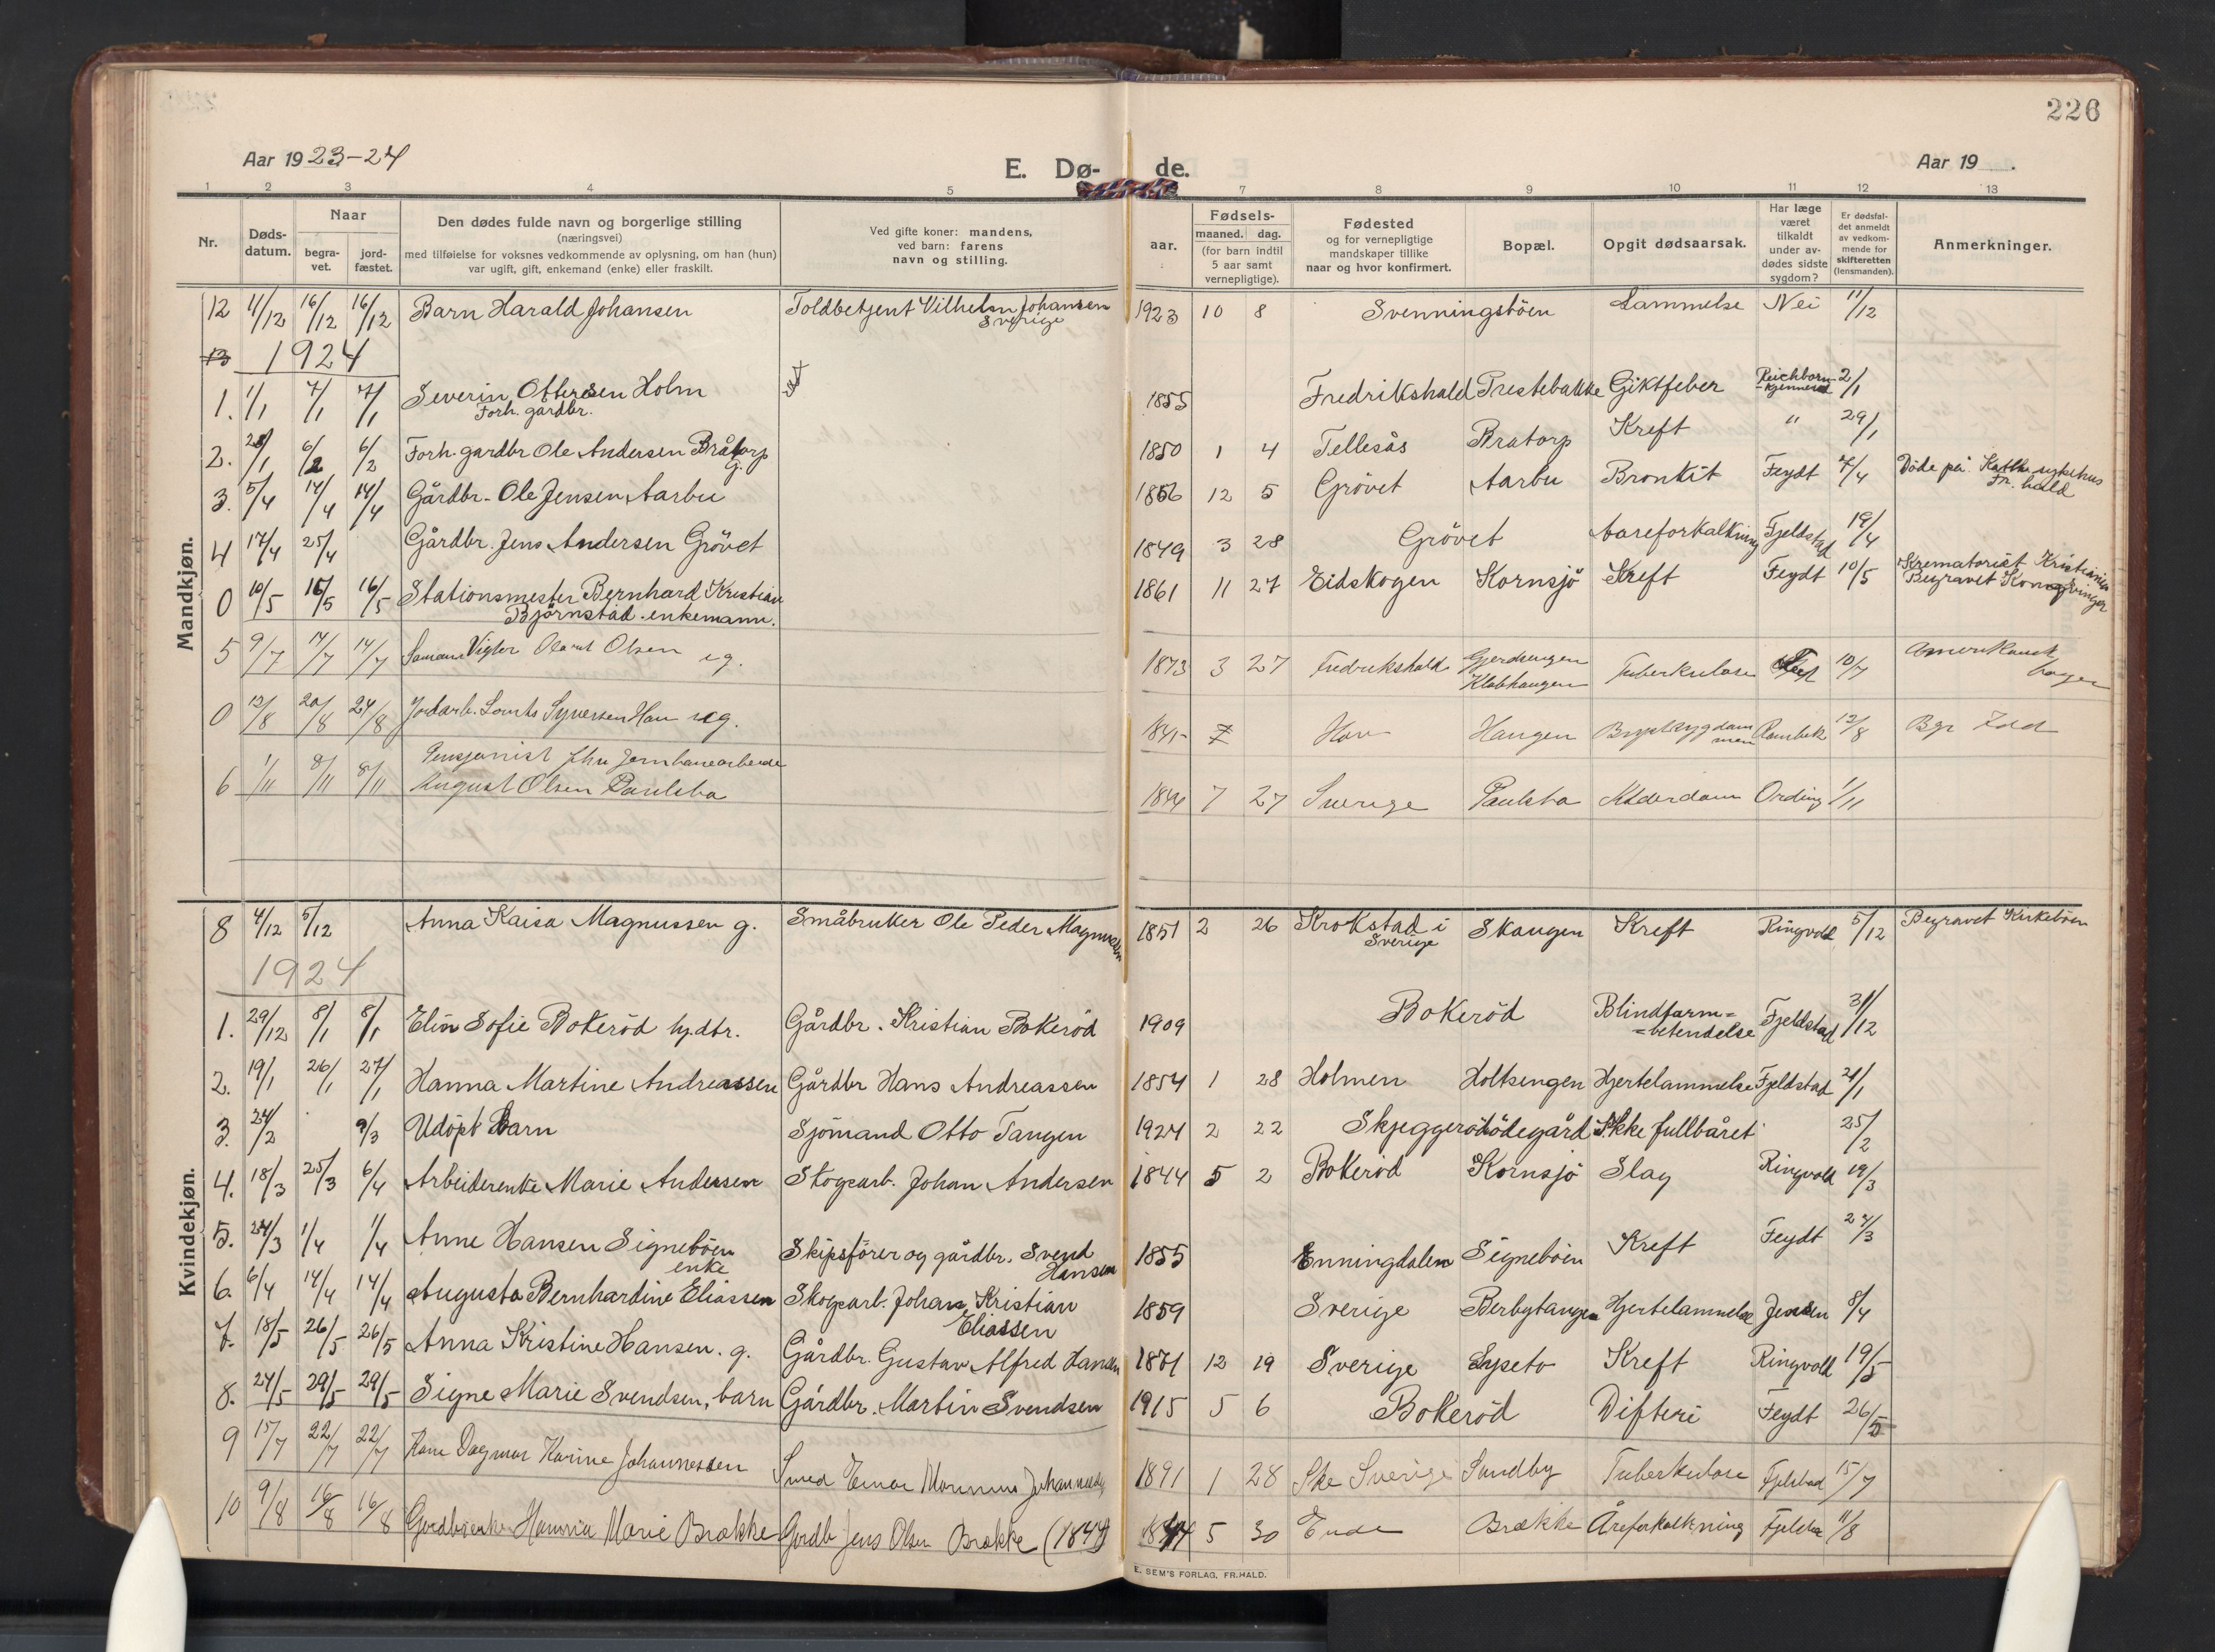 226
Aar 1923-24
E. Dø- de.
Aar 19
1 2 3 4 5 7 8 9 10 11 12 13
Nr.
Døds-
datum.
Naar
begra-
vet.
jord-
fæstet.
Den dødes fulde navn og borgerlige stilling
(næringsvei)
med tilføielse for voksnes vedkommende av oplysning, om han (hun)
var ugift, gift, enkemand (enke) eller fraskilt.
Ved gifte koner: mandens,
ved barn: farens
navn og stilling.
aar.
Fødsels-
maaned. dag.
(for barn indtil
5 aar samt
vernepligtige).
Fødested
og for vernepligtige
mandskaper tillike
naar og hvor konfirmert.
Bopæl.
Opgit dødsaarsak.
Har læge
været
tilkaldt
under av-
dødes sidste
sygdom?
Er dødsfal-
det anmeldt
av vedkom-
mende for
skifteretten
(lensmanden).
Anmerkninger.
Mandkjøn.
12 11/12 16/12 16/12 Barn Harald Johansen Toldbetjent Vilhelm Johansen 1923 10 8 Svenningsböen Lammelse Nei 11/12
Sverige
13 1924
1. 1/1 7/1 7/1 Severin Ottersen Holm 1855 Fredrikshald Prestebakke Giktfeber Reichborn- 2/1
Forh. gardbr. kjennerud
2. 28/1 6/2 6/2 Forh. gardbr Ole Andersen Bråtorp 1850 1 4 Tellesås Bratorp Kreft " 29/1
G.
3. 5/4 14/4 14/4 Gårdbr. Ole Jensen Aarbu 1856 12 5 Grövet Aarbu Bronkit Feydt 7/4 Döde på Kath. sykehus
Fr. hald
4 17/4 25/4 Gårdbr. Jens Andersen Grövet 1849 3 28 Grövet Aareforkalkning Fjeldstad 19/4
0 10/5 16/5 16/5 Stationsmester Bernhard Kristian 1861 11 27 Eidskogen Kornsjö Kreft Feydt 10/5 Krematoriet Kristiania
Björnstad. enkemann. Begravet Kongsvinger
5 9/7 14/7 14/7 Vigter Olaus Olsen ug. 1873 3 27 Fredrikshald Gjerdsengen Tuberkulose 10/7 Amerikansk
Klobhaugen borger
0 12/8 20/8 24/8 Jordarb. Syversen Hau ug. 1841 Hov Haugen Rambek 12/8 Bgr Idd
Pensjonist fhv Jernbanearbeider
6 1/11 8/11 8/11 August Olsen Paulsbo 1844 7 27 Sverige Paulsbo Alderdom Ording 1/11
Kvindekjøn.
8 4/12 5/12 Anna Kaisa Magnussen g. Småbruker Ole Peder Magnussen 1851 2 26 Krokstad i Skaugen Kreft Ringvold 5/12 Begravet Kirkeböen
Sverige
1924
1. 29/12 8/1 8/1 Elin Sofie Bokeröd hj.dtr. Gårdbr. Kristian Bokeröd 1909 Bokeröd Blindtarm= Fjeldstad 31/12
=betendelse
2. 19/1 26/1 27/1 Hanna Martine Andreassen Gårdbr Hans Andreassen 1854 1 28 Holmen Holtsengen Hjertelammelse Fjeldstad 21/1
3. 24/2 9/3 Udöpt Barn Sjömand Otto Tangen 1924 2 22 Skjeggerödödegård Ikke fullbåret 25/2
4. 18/3 25/3 6/4 Arbeiderenke Marie Andersen Skogsarb. Johan Andersen 1844 5 2 Bokeröd Kornsjö Slag Ringvold 19/3
5. 24/3 1/4 1/4 Anne Hansen Signeböen Skipsförer og gårdbr. Svend 1855 Enningdalen Signeböen Kreft Feydt 27/3
enke Hansen
6. 6/4 14/4 14/4 Augusta Bernhardine Eliassen Skogsarb. Johan Kristian 1859 Sverige Berbytangen Hjertelammelse Jensen 8/4
Eliassen
7. 18/5 26/5 26/5 Anna Kristine Hansen. g. Gårdbr. Gustav Alfred Hansen 1871 12 19 Sverige Lyseto Kreft Ringvold 19/5
8. 24/5 29/5 29/5 Signe Marie Svendsen, barn Gårdbr. Martin Svendsen 1915 5 6 Bokeröd Difteri Feydt 26/5
9 15/7 22/7 22/7 Kone Dagmar Karine Johannessen Smed Einar Johannessen 1891 1 28 Skee Sverige Sundby Tuberkulose Fjelstad 15/7
10 9/8 16/8 16/8 Gardbrenke Hanna Marie Brække Gardbr Jens Olsen Brække (1844) 1844 5 30 Ende Brække Åreforkalkning Fjelstad 11/8
E. SEM'S FORLAG, FR.HALD.